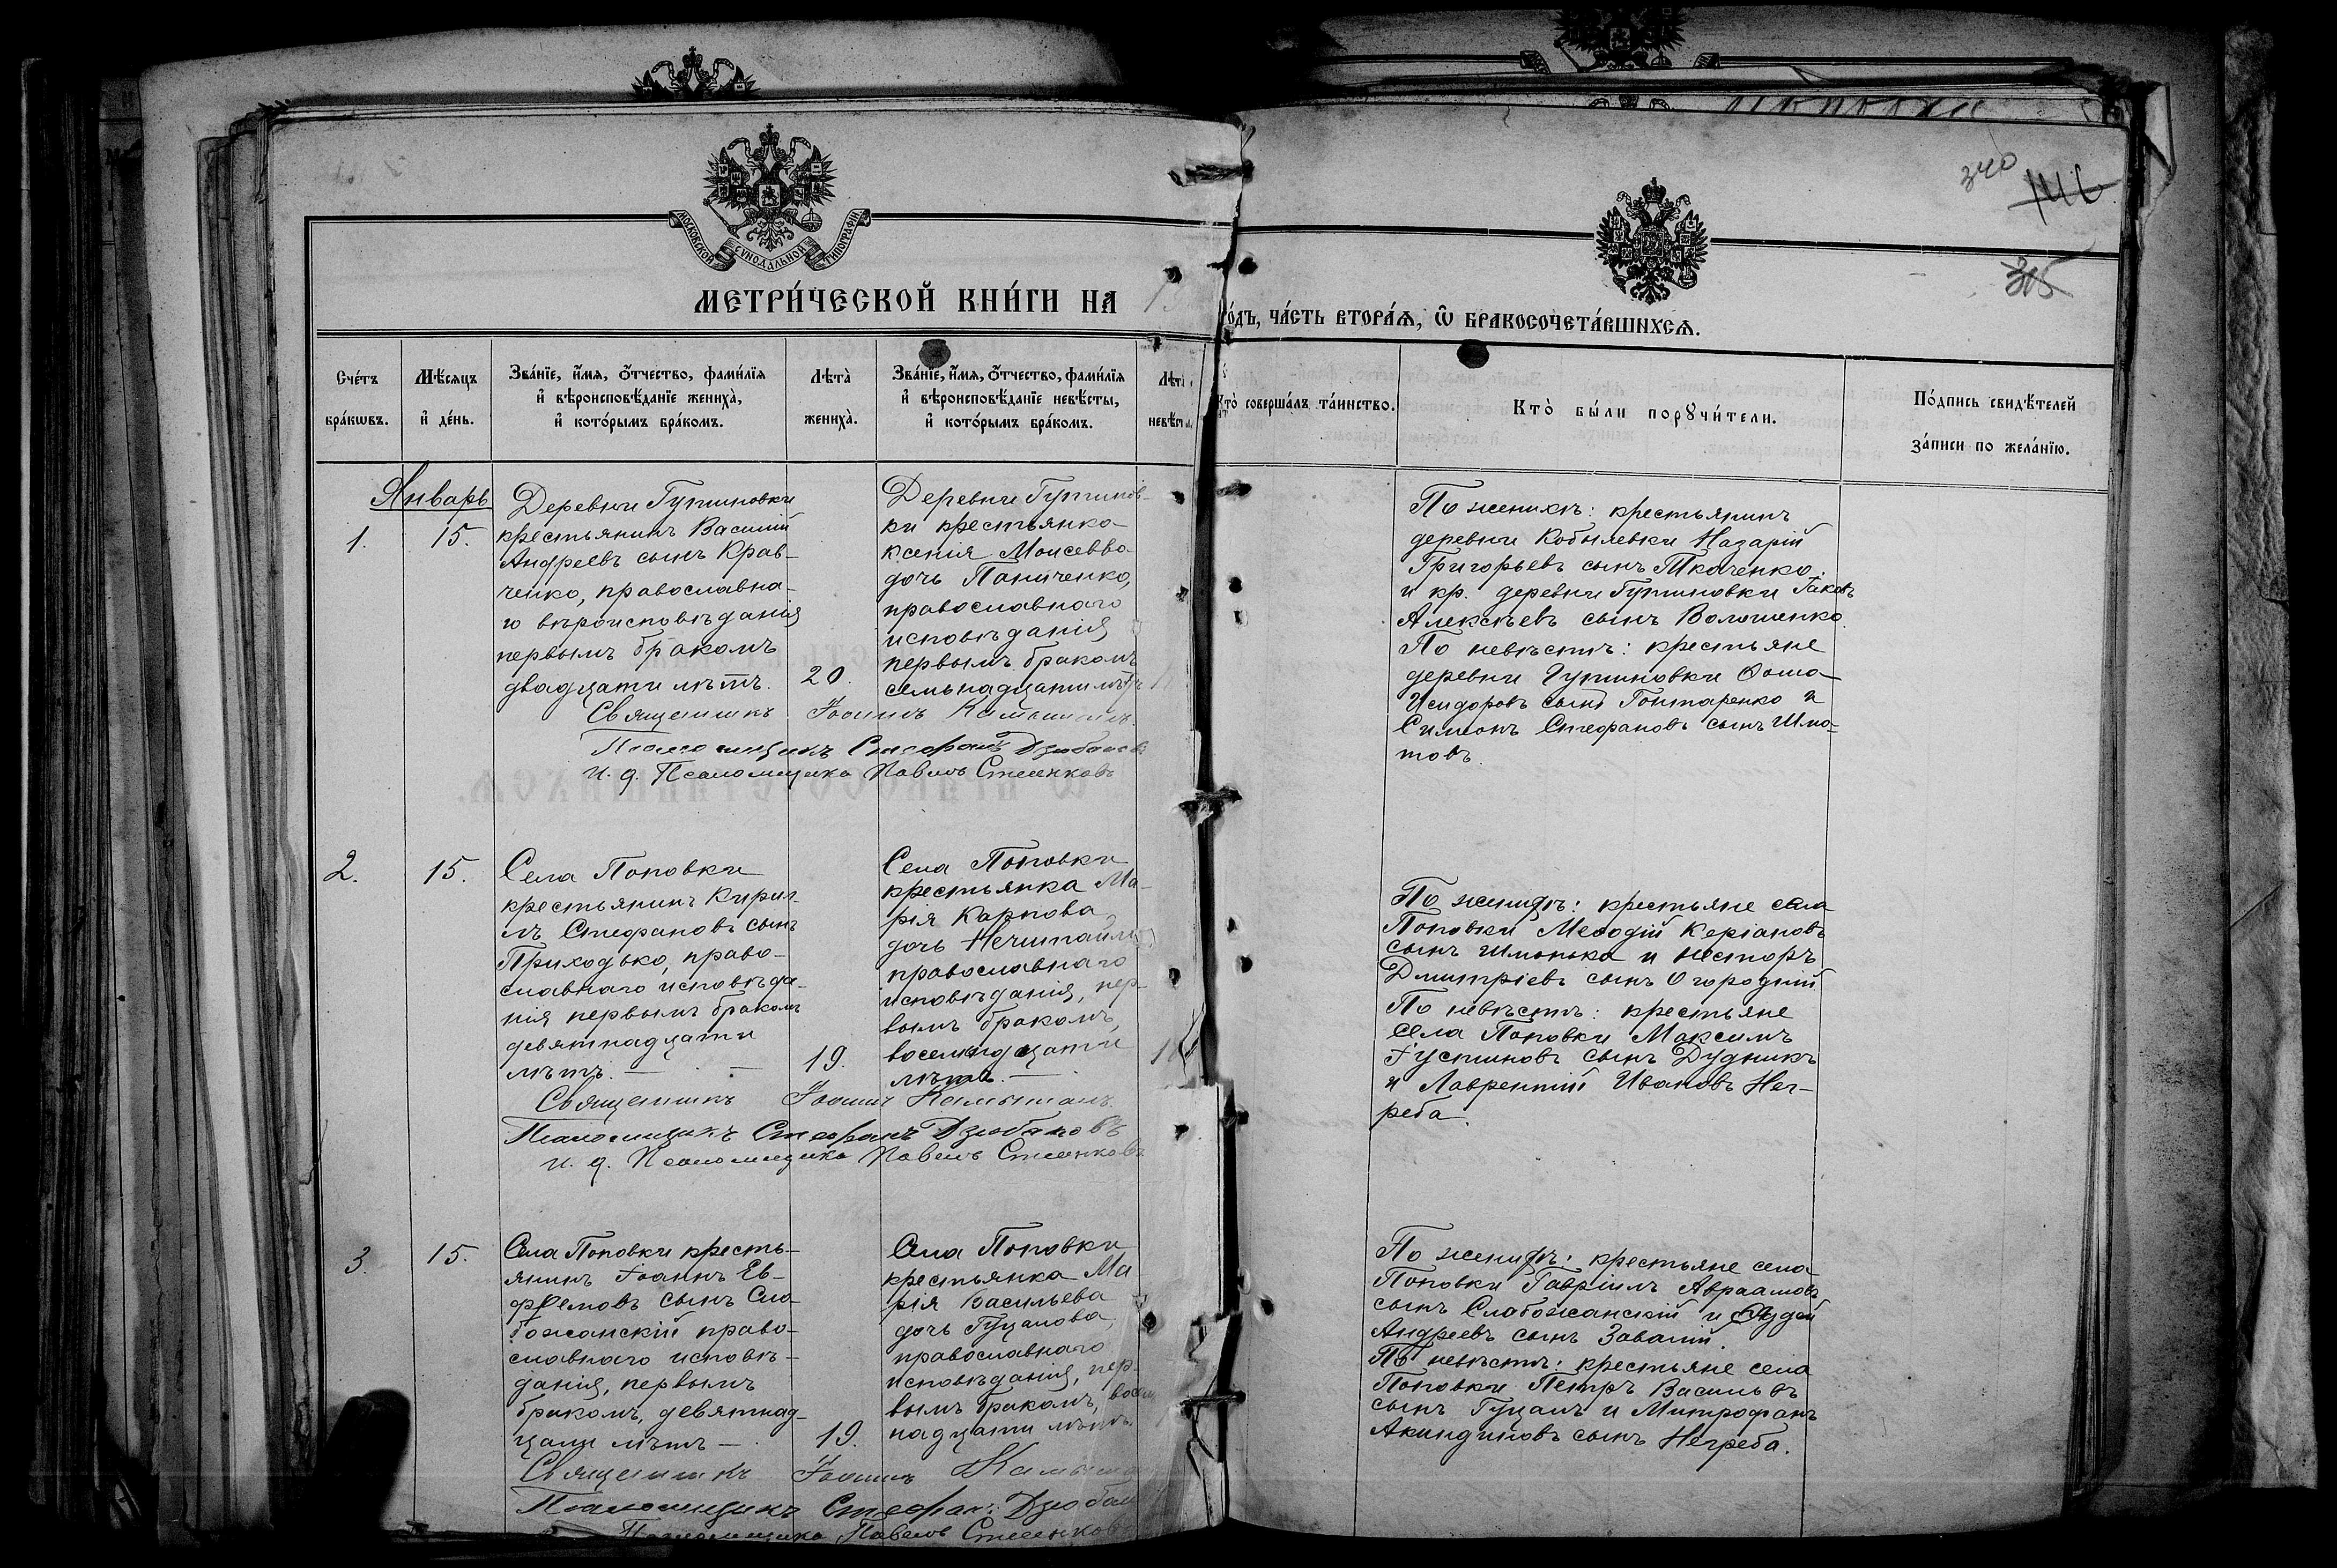 340
146
315
МОСКОВСКОЙ СѴНОДАЛЬНОЙ ТИПОГРАФІИ
МЕТРИ́ЧЕСКОЙ КНИ́ГИ НА 1
О́ДЪ, ЧА́СТЬ ВТОРА́Ѧ, Ѽ БРАКОСОЧЕТА́ВШИХСѦ.
Сче́тъ бра́кѡвъ.
Мѣ́сяцъ и҆ де́нь.
Зва́нїе, и҆́мя, о҆́тчество, фами́лїя
и҆ вѣроисповѣ́данїе жениха̀,
и҆ кото́рымъ бра́комъ.
Лѣта̀ жениха̀.
Зва́нїе, и҆́мя, о҆́тчество, фами́лїя
и҆ вѣроисповѣ́данїе невѣ́сты,
и҆ кото́рымъ бра́комъ.
Лѣта̀
невѣ́сты
Кто̀ соверша́лъ та́инство.
Кто̀ бы́ли порꙋчи́тели.
По́дпись свидѣ́телей
за́писи по жела́нїю.
Январь
1.
15.
Деревни Гутиновки
крестьянинъ Василій
Андреевъ сынъ Крав-
ченко, православна-
го вѣроисповѣданія
первымъ бракомъ
двадцати лѣтъ.
20.
Деревни Гутинов-
ки крестьянка
Ксенія Моисеева
дочь Паниченко,
православнаго
исповѣданія
первымъ бракомъ
семьнадцати лѣтъ
Священникъ Іоаннъ
Псаломщикъ Стефанъ Дзюбановъ
И. д. Псаломщика Павелъ Стеенковъ
По женихѣ: крестьянинъ
деревни Кобылевки Назарій
Григорьевъ сынъ Ткаченко
и кр. деревни Гутиновки Іаковъ
Алексѣевъ сынъ Волошенко.
По невѣстѣ: крестьяне
деревни Гутиновки Фома
Исидоровъ сынъ Гонтаренко и
Симеонъ Стефановъ сынъ Шма-
товъ.
2.
15.
Села Поповки
крестьянинъ Кирил-
лъ Стефановъ сынъ
Приходько, право-
славнаго исповѣда-
нія первымъ бракомъ
девятнадцати
лѣтъ. —
19.
Села Поповки
крестьянка Ма-
рія Карпова
дочь Нечитайло
православнаго
исповѣданія, пер-
вымъ бракомъ,
восемнадцати
лѣтъ. —
Священникъ Іоаннъ
Псаломщикъ Стефанъ Дзюбановъ
И. д. Псаломщика Павелъ Стеенковъ
По женихѣ: крестьяне села
Поповки Меѳодій Керіановъ
сынъ Шмонька и Несторъ
Дмитріевъ сынъ Огородній
По невѣстѣ: крестьяне
села Поповки Максимъ
Іустиновъ сынъ Дудникъ
и Лаврентій Ивановъ Нег-
реба.
3.
15.
Села Поповки кресть-
янинъ Іоаннъ Ев-
фремовъ сынъ Сло-
божанскій право-
славнаго исповѣ-
данія, первымъ
бракомъ, девятнад-
цати лѣтъ —
19.
Села Поповки
крестьянка Ма-
рія Васильева
дочь Гуцалова,
православнаго
исповѣданія, пер-
вымъ бракомъ, восем
надцати лѣтъ.
Священникъ Іоаннъ
Псаломщикъ Стефанъ Дзюбан
Псаломщика Павелъ Стеенковъ
По женихѣ: крестьяне села
Поповки Гавріилъ Авраамовъ
сынъ Слабожанскій и
Андреевъ сынъ Завалій.
По невѣстѣ: крестьяне села
Поповки Петръ Васильевъ
сынъ Гуцалъ и Митрофанъ
Акиндиновъ сынъ Негреба.